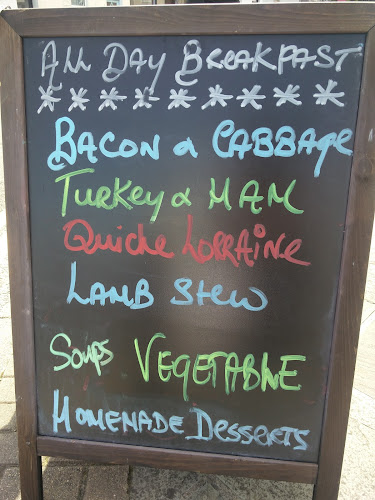 All Day Breakfast
* * * * * * * *
Bacon & Cabbage
Turkey & HAM
Quiche Lorraine
Lamb Stew
Soups Vegetable
Homemade Desserts